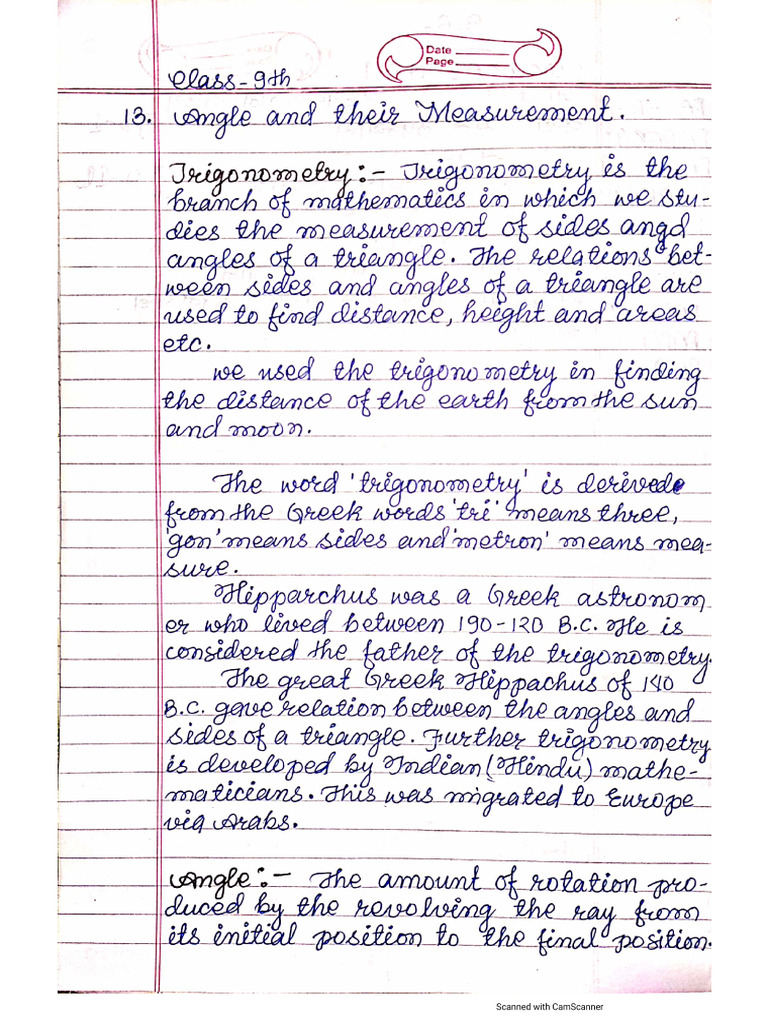 Date
Page
Class-9th
13. Angle and their Measurement.
Trigonometry:- Trigonometry is the
branch of mathematics in which we stu-
dies the measurement of sides angd
angles of a triangle. The relations bet-
ween sides and angles of a triangle are
used to find distance, height and areas
etc.
we used the trigonometry in finding
the distance of the earth from the sun
and moon.
The word 'trigonometry' is derived
from the Greek words 'tri' means three,
'gon' means sides and 'metron' means mea-
sure.
Hipparchus was a Greek astronom
er who lived between 190-120 B.C. He is
considered the father of the trigonometry.
The great Greek Hippachus of 140
B.C. gave relation between the angles and
sides of a triangle. Further trigonometry
is developed by Indian (Hindu) mathe-
maticians. This was migrated to Europe
via Arabs.
Angle:- The amount of rotation pro-
duced by the revolving the ray from
its initial position to the final position.
Scanned with CamScanner